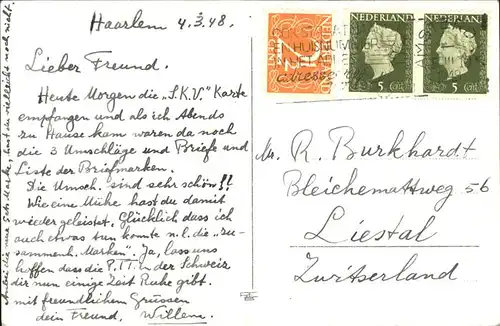 Haarlem 4.3.48.
Lieber Freund.
Heute Morgen die „S.K.V." Karte
empfangen und als ich Abends
zu Hause kam waren da noch
die 3 Umschläge und Briefe und
Liste der Briefmarken.
Die Umsch. sind sehr schön!!
Wie eine Mühe hast du damit
wieder geleistet. Glücklich dass ich
auch etwas tun konnte n.l. die „zu-
sammenh. Marken". Ja, lass uns
hoffen dass die P.T.T. in der Schweiz
dir nun einige Zeit Ruhe gibt.
mit freundlichem Grüssen
dein Freund, Willem.
hast du vielleicht noch nicht.
NEDERLAND
NEDERLAND
5 CENT
5 CENT
HUISNUMMER
adresse
AMS
Mr. R. Burkhardt
Bleichemattweg 56
Liestal
Zwitserland